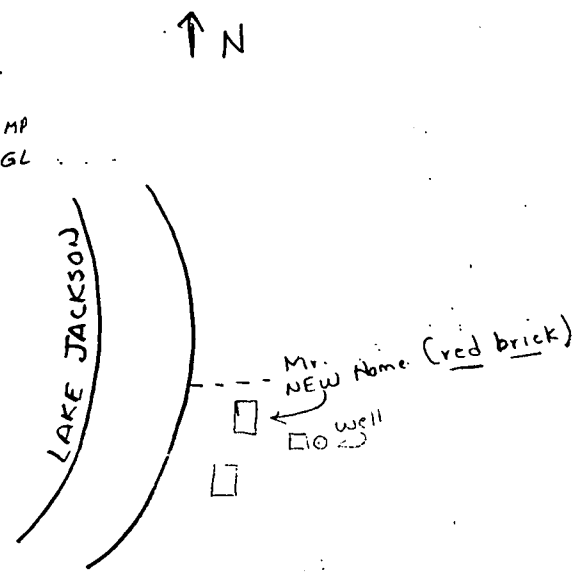 N
MP
GL
LAKE JACKSON
Mr.
NEW Home (red brick)
well